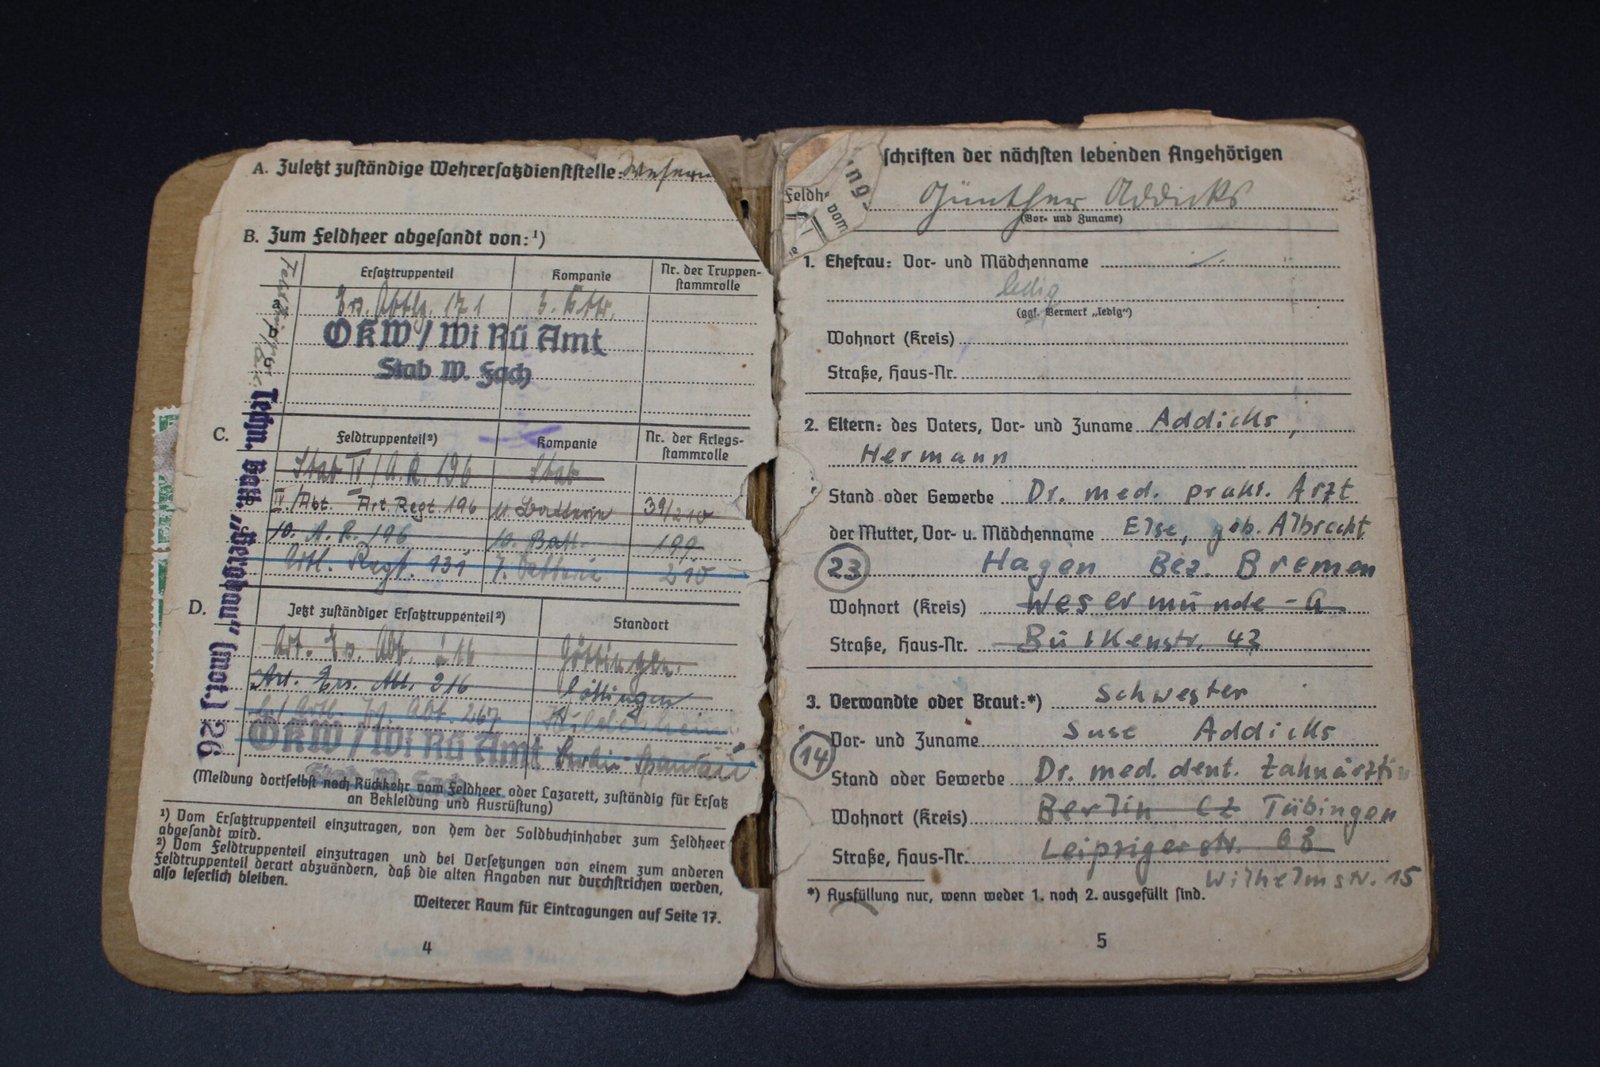 A. Zuletzt zuständige Wehrersatzdienststelle:
B. Zum Feldheer abgesandt von:¹)
Ersatztruppenteil Kompanie Nr. der Truppen-
stammrolle
Ers. Abtlg. 171 3. Bttr.
OKW / Wi Rü Amt
Stab W. Fach
C. Feldtruppenteil²) Kompanie Nr. der Kriegs-
stammrolle
Stab IV / A.R. 196 Stab
IV/Abt. Art Regt 196 11 Batterie 39/210
10. A. R. 196 10. Batt. 199
Artl. Regt. 131 7. Batterie 210
Techn. Batl. „Bergbau“ (mot.) 26
D. Jetzt zuständiger Ersatztruppenteil²) Standort
Art. Ers. Abt. 216 Göttingen
Art. Ers. Abt. 216 Göttingen
Artl. Ers. Abt. 267
OKW / Wi Rü Amt Berlin-Spandau
Stab W. Fach
(Meldung dortselbst nach Rückkehr vom Feldheer oder Lazarett, zuständig für Ersatz
an Bekleidung und Ausrüstung)
¹) Vom Ersatztruppenteil einzutragen, von dem der Soldbuchinhaber zum Feldheer
abgesandt wird.
²) Vom Feldtruppenteil einzutragen und bei Versetzungen von einem zum anderen
Feldtruppenteil derart abzuändern, daß die alten Angaben nur durchstrichen werden,
also leserlich bleiben.
Weiterer Raum für Eintragungen auf Seite 17.
4
schriften der nächsten lebenden Angehörigen
Feldh
vom
Günther Addicks
(Vor- und Zuname)
1. Ehefrau: Vor- und Mädchenname
ledig
(ggf. Vermerk „ledig“)
Wohnort (Kreis)
Straße, Haus-Nr.
2. Eltern: des Vaters, Vor- und Zuname Addicks,
Hermann
Stand oder Gewerbe Dr. med. prakt. Arzt
der Mutter, Vor- u. Mädchenname Else, geb. Albrecht
23 Hagen Bez. Bremen
Wohnort (Kreis) Wesermünde - G
Straße, Haus-Nr. 42
3. Verwandte oder Braut:*) Schwester
Vor- und Zuname Suse Addicks
14
Stand oder Gewerbe Dr. med. dent. Zahnärztin
Wohnort (Kreis) Berlin C2 Tübingen
Straße, Haus-Nr. Leipzigerstr. 68
Wilhelmstr. 15
*) Ausfüllung nur, wenn weder 1. noch 2. ausgefüllt sind.
5